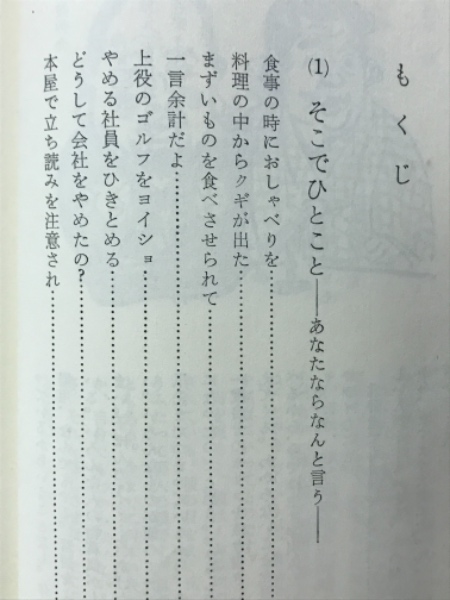 もくじ
(1) そこでひとこと――あなたならなんと言う――
食事の時におしゃべりを……………………
料理の中からクギが出た……………………
まずいものを食べさせられて……………………
一言余計だよ……………………
上役のゴルフをヨイショ……………………
やめる社員をひきとめる……………………
どうして会社をやめたの?……………………
本屋で立ち読みを注意され……………………